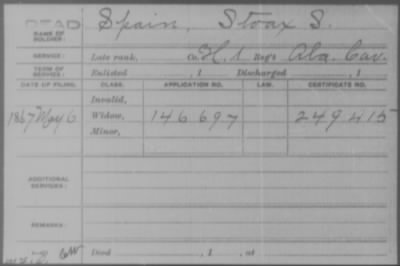 DEAD
NAME OF SOLDIER: Spain, Stoax S.
SERVICE: Late rank, Co. H. 1 Reg't Ala. Cav.
TERM OF SERVICE: Enlisted , 1 Discharged , 1
DATE OF FILING. CLASS. APPLICATION NO. LAW. CERTIFICATE NO.
Invalid,
1867 May 6 Widow, 146697 249.415
Minor,
ADDITIONAL SERVICES:
REMARKS:
Died , 1 , at